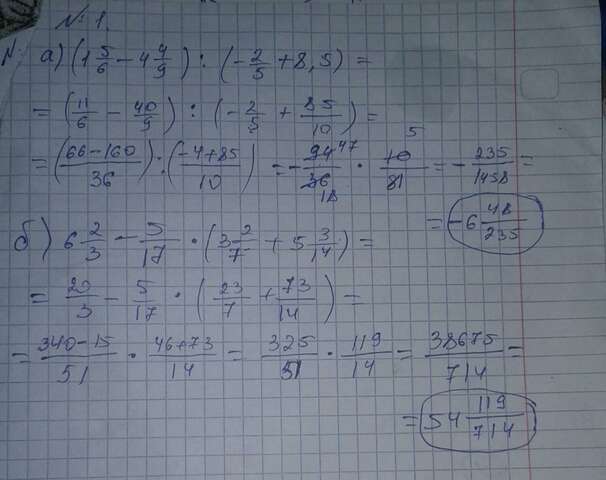 № 1.
№. а) (1 5/6 − 4 4/9) : (− 2/5 + 8,5) =
= (11/6 − 40/9) : (− 2/5 + 85/10) =
= ((66−160)/36) : ((−4+85)/10) = − 94 47/36 18 · 10 5/81 = − 235/1458 =
= −6 48/235
б) 6 2/3 − 5/17 · (3 2/7 + 5 3/14) =
= 20/3 − 5/17 · (23/7 + 73/14) =
= (340−15)/51 · (46+73)/14 = 325/51 · 119/14 = 38675/714 =
= 54 119/714